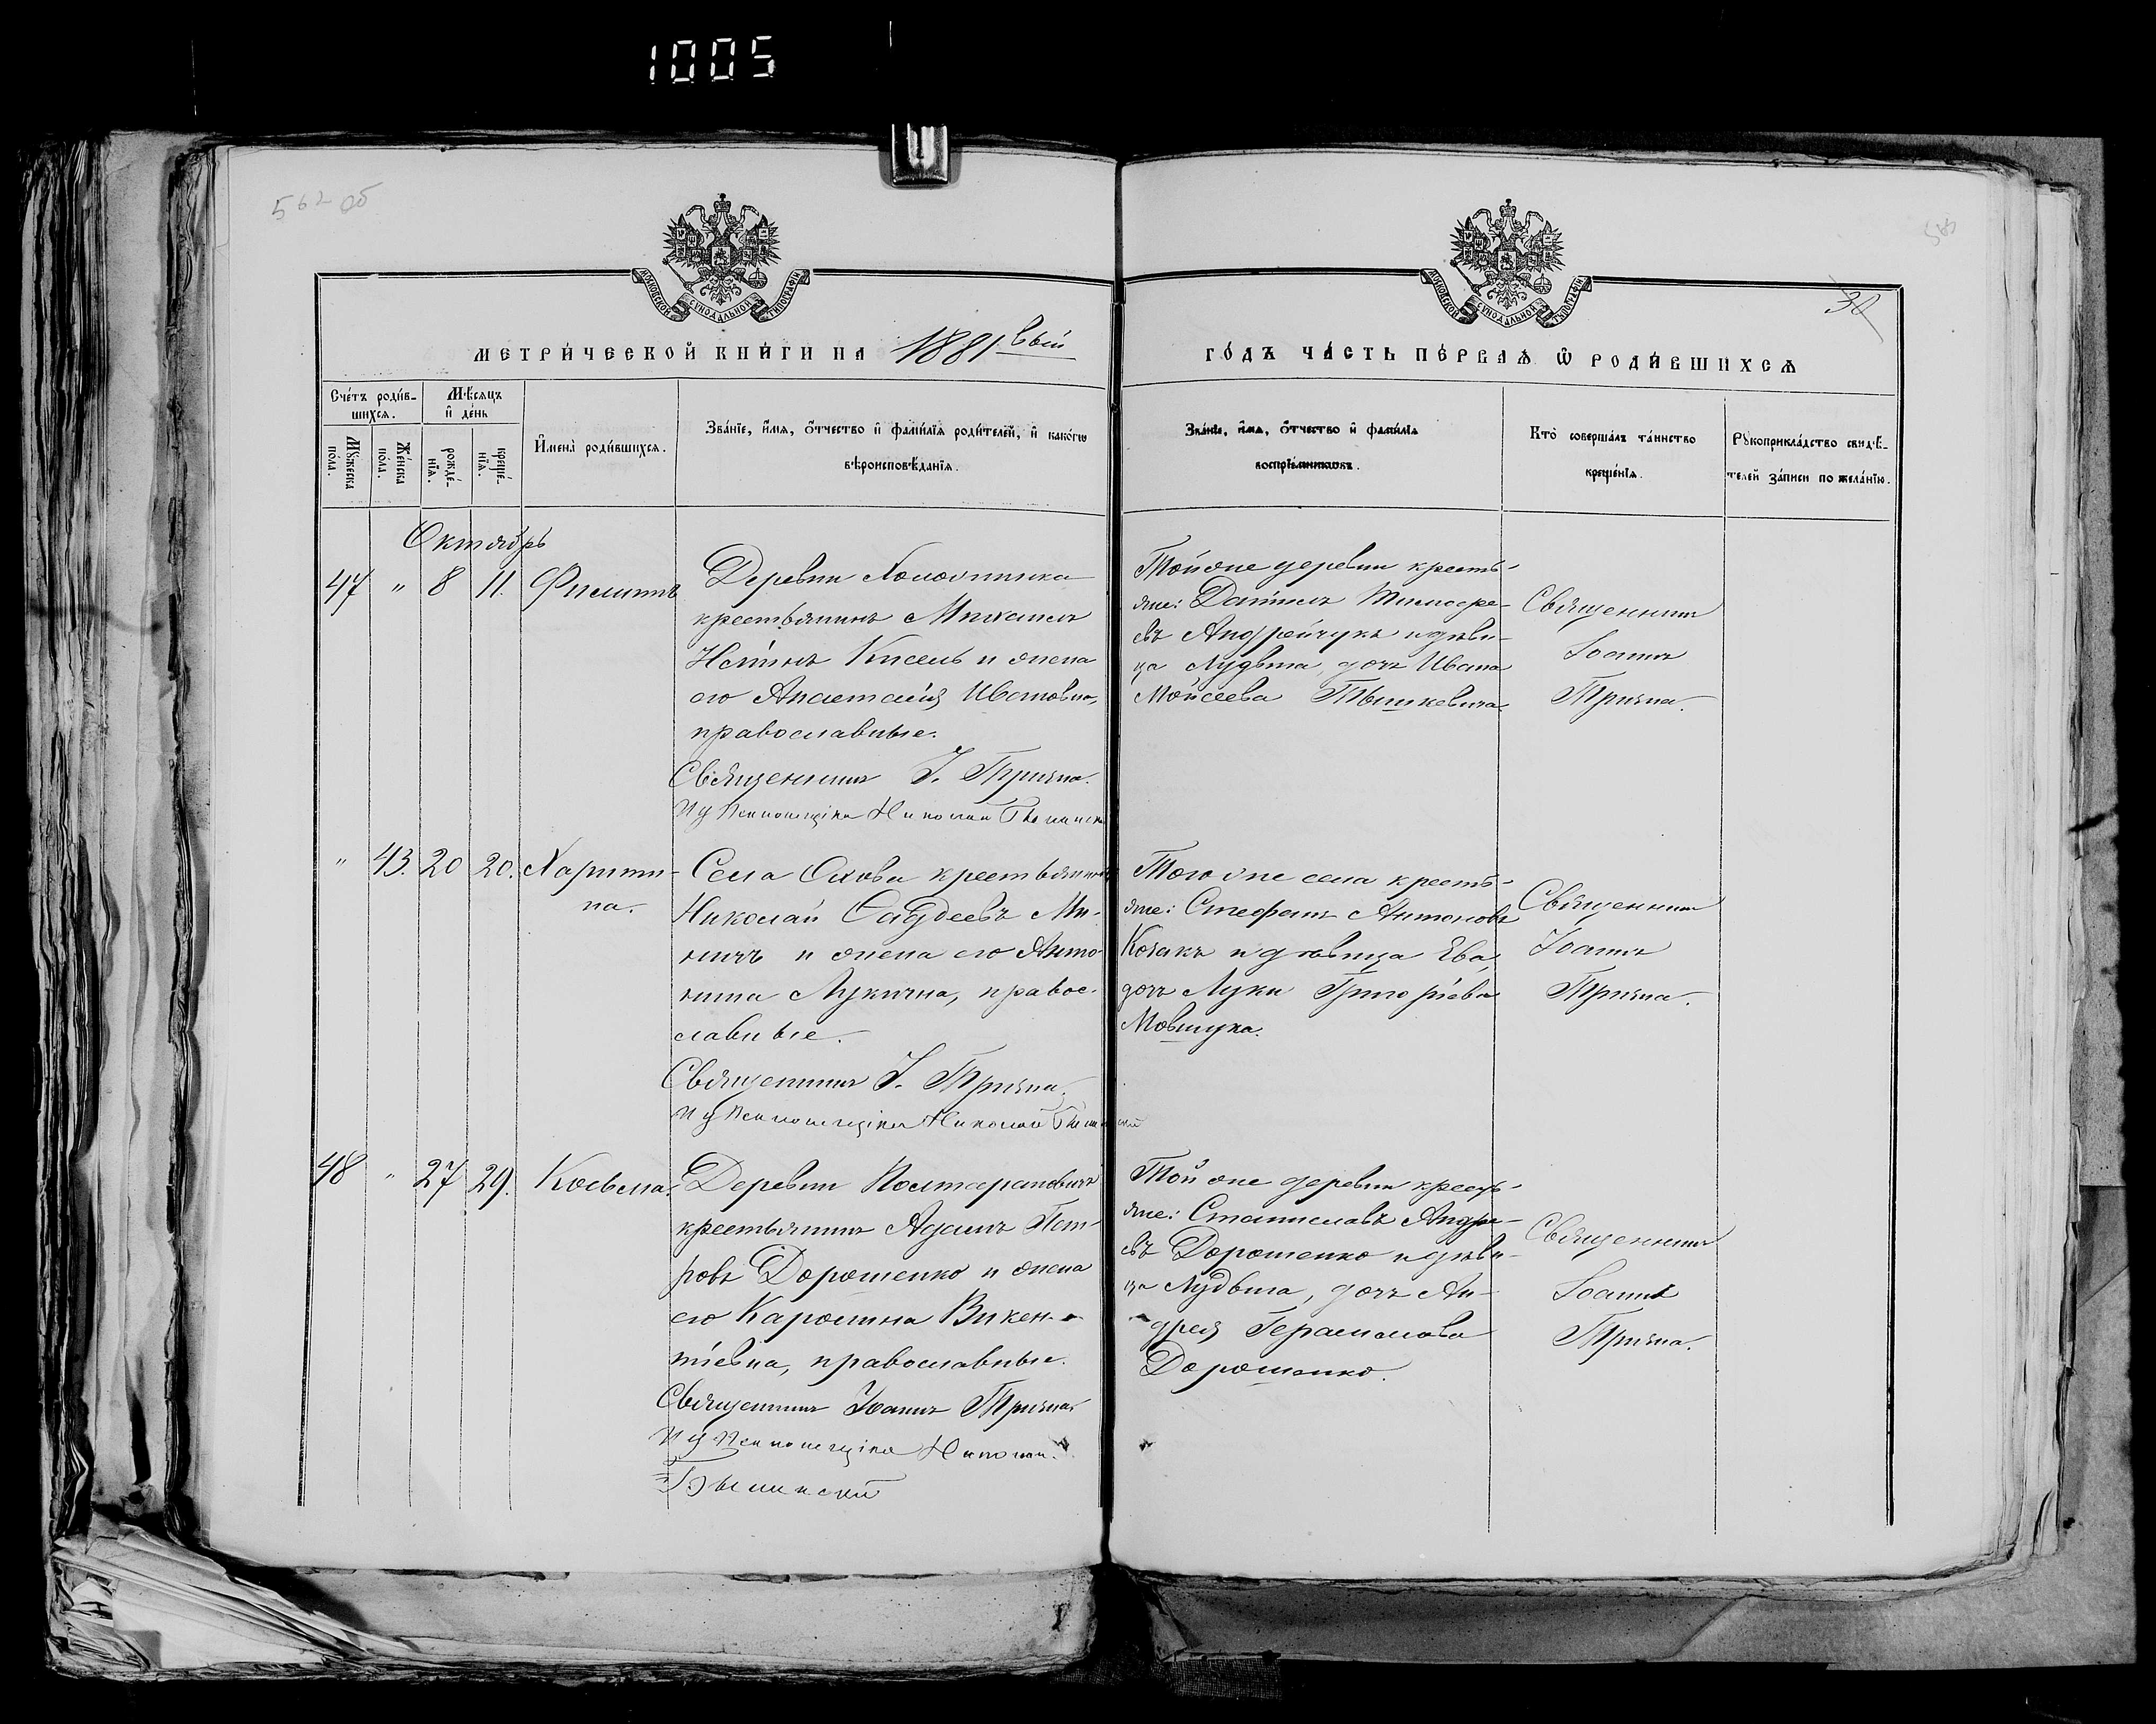 1005
562 об
МОСКОВСКОЙ СѴНОДАЛЬНОЙ ТИПОГРАФІИ
МОСКОВСКОЙ СѴНОДАЛЬНОЙ ТИПОГРАФІИ
30
МЕТРИ́ЧЕСКОЙ КНИ́ГИ НА 1881 вый
ГО́ДЪ ЧА́СТЬ ПЕ́РВАѦ Ѿ РОДИ́ВШИХСѦ
Сче́тъ роди́в-
шихсѧ.
Мѣ́сяцъ
и҆ де́нь
Мꙋ́жеска
по́ла.
Же́нска
по́ла.
рожде́-
нїѧ.
креще́-
нїѧ.
И҆мена̀ роди́вшихсѧ.
Зва́нїе, и҆́мѧ, ѻ҆́тчество и҆ фами́лїѧ роди́телей, и҆ како́гѡ
вѣроисповѣ́данїѧ.
Зва́нїе, и҆́мѧ, ѻ҆́тчество и҆ фами́лїѧ
воспрїе́мниковъ.
Кто̀ соверша́лъ та́инство
креще́нїѧ.
Рꙋкоприкла́дство свидѣ́-
телей за́писи по жела́нїю.
Октябрь
47 " 8 11. Филиппъ
Деревни Холопичка
крестьянинъ Михаилъ
Кисель и жена
его Анастасія Иванов-
православные.
Священникъ І. Трична.
И д Псаломщика Николай
Той же деревни кресть-
яне: Даніилъ Тимофее-
въ Андрейчукъ и дѣви-
ца Людвига, дочь Ивана
Мойсеева Тышкевича.
Священникъ
Іоаннъ
Трична.
" 43. 20 20. Харити-
на.
Села Охова крестьянинъ
Николай Фаддеевъ Ми-
ничъ и жена его Анто-
нина Лукична, правос-
лавные.
Священникъ І. Трична.
И д Псаломщика Николай
Того же села кресть-
яне: Стефанъ Антоновъ
Козакъ и дѣвица Ева,
дочь Луки Григоріева
Мовшука.
Священникъ
Іоаннъ
Трична.
48 " 27 29. Косьма.
Деревни Полтарановичъ
крестьянинъ Адамъ Пет-
ровъ Дорошенко и жена
его Каролина Викен-
тіевна, православные.
Священникъ Іоаннъ Трична
И д Псаломщика Николай
Той же деревни кресть-
яне: Станиславъ Андре-
евъ Дорошенко и дѣви-
ца Людвига, дочь Ан-
дрея Герасимова
Дорошенко.
Священникъ
Іоаннъ
Трична.